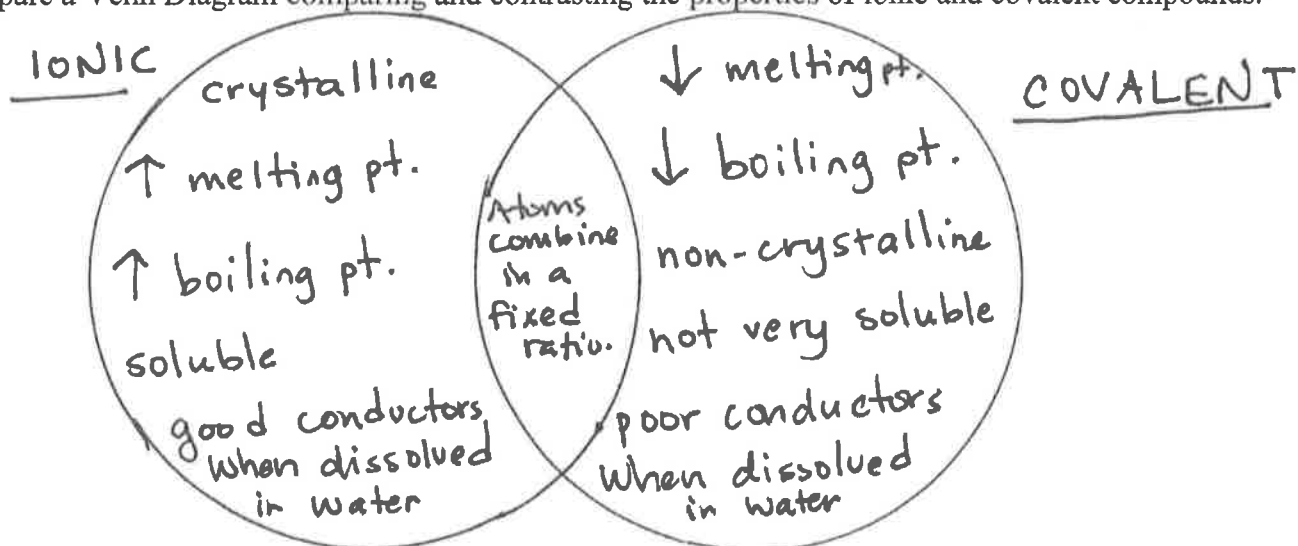 pare a Venn Diagram comparing and contrasting the properties of ionic and covalent compounds.
IONIC
crystalline
↑ melting pt.
↑ boiling pt.
soluble
good conductors
when dissolved
in water
Atoms
combine
in a
fixed
ratio.
COVALENT
↓ melting pt.
↓ boiling pt.
non-crystalline
not very soluble
poor conductors
when dissolved
in water